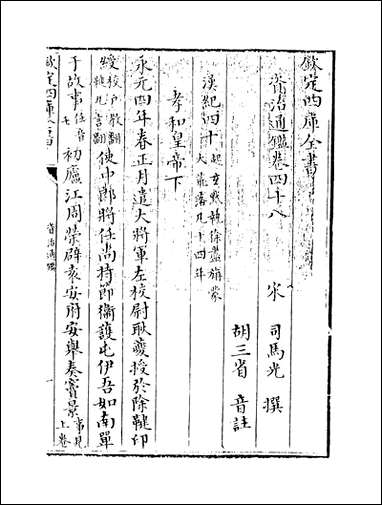 欽定四庫全書
資治通鑑卷四十八
宋 司馬光 撰
胡三省 音註
漢紀四十 起玄黓執徐盡旃蒙大荒落凡十四年
孝和皇帝下
永元四年春正月遣大將軍左校尉耿夔授於除鞬印
綬校户教翻鞬九言翻使中郎將任尚持節衛護屯伊吾如南單
于故事任音壬初廬江周榮辟袁安府安舉奏竇景事見上卷
欽定四庫全書
資治通鑑
一